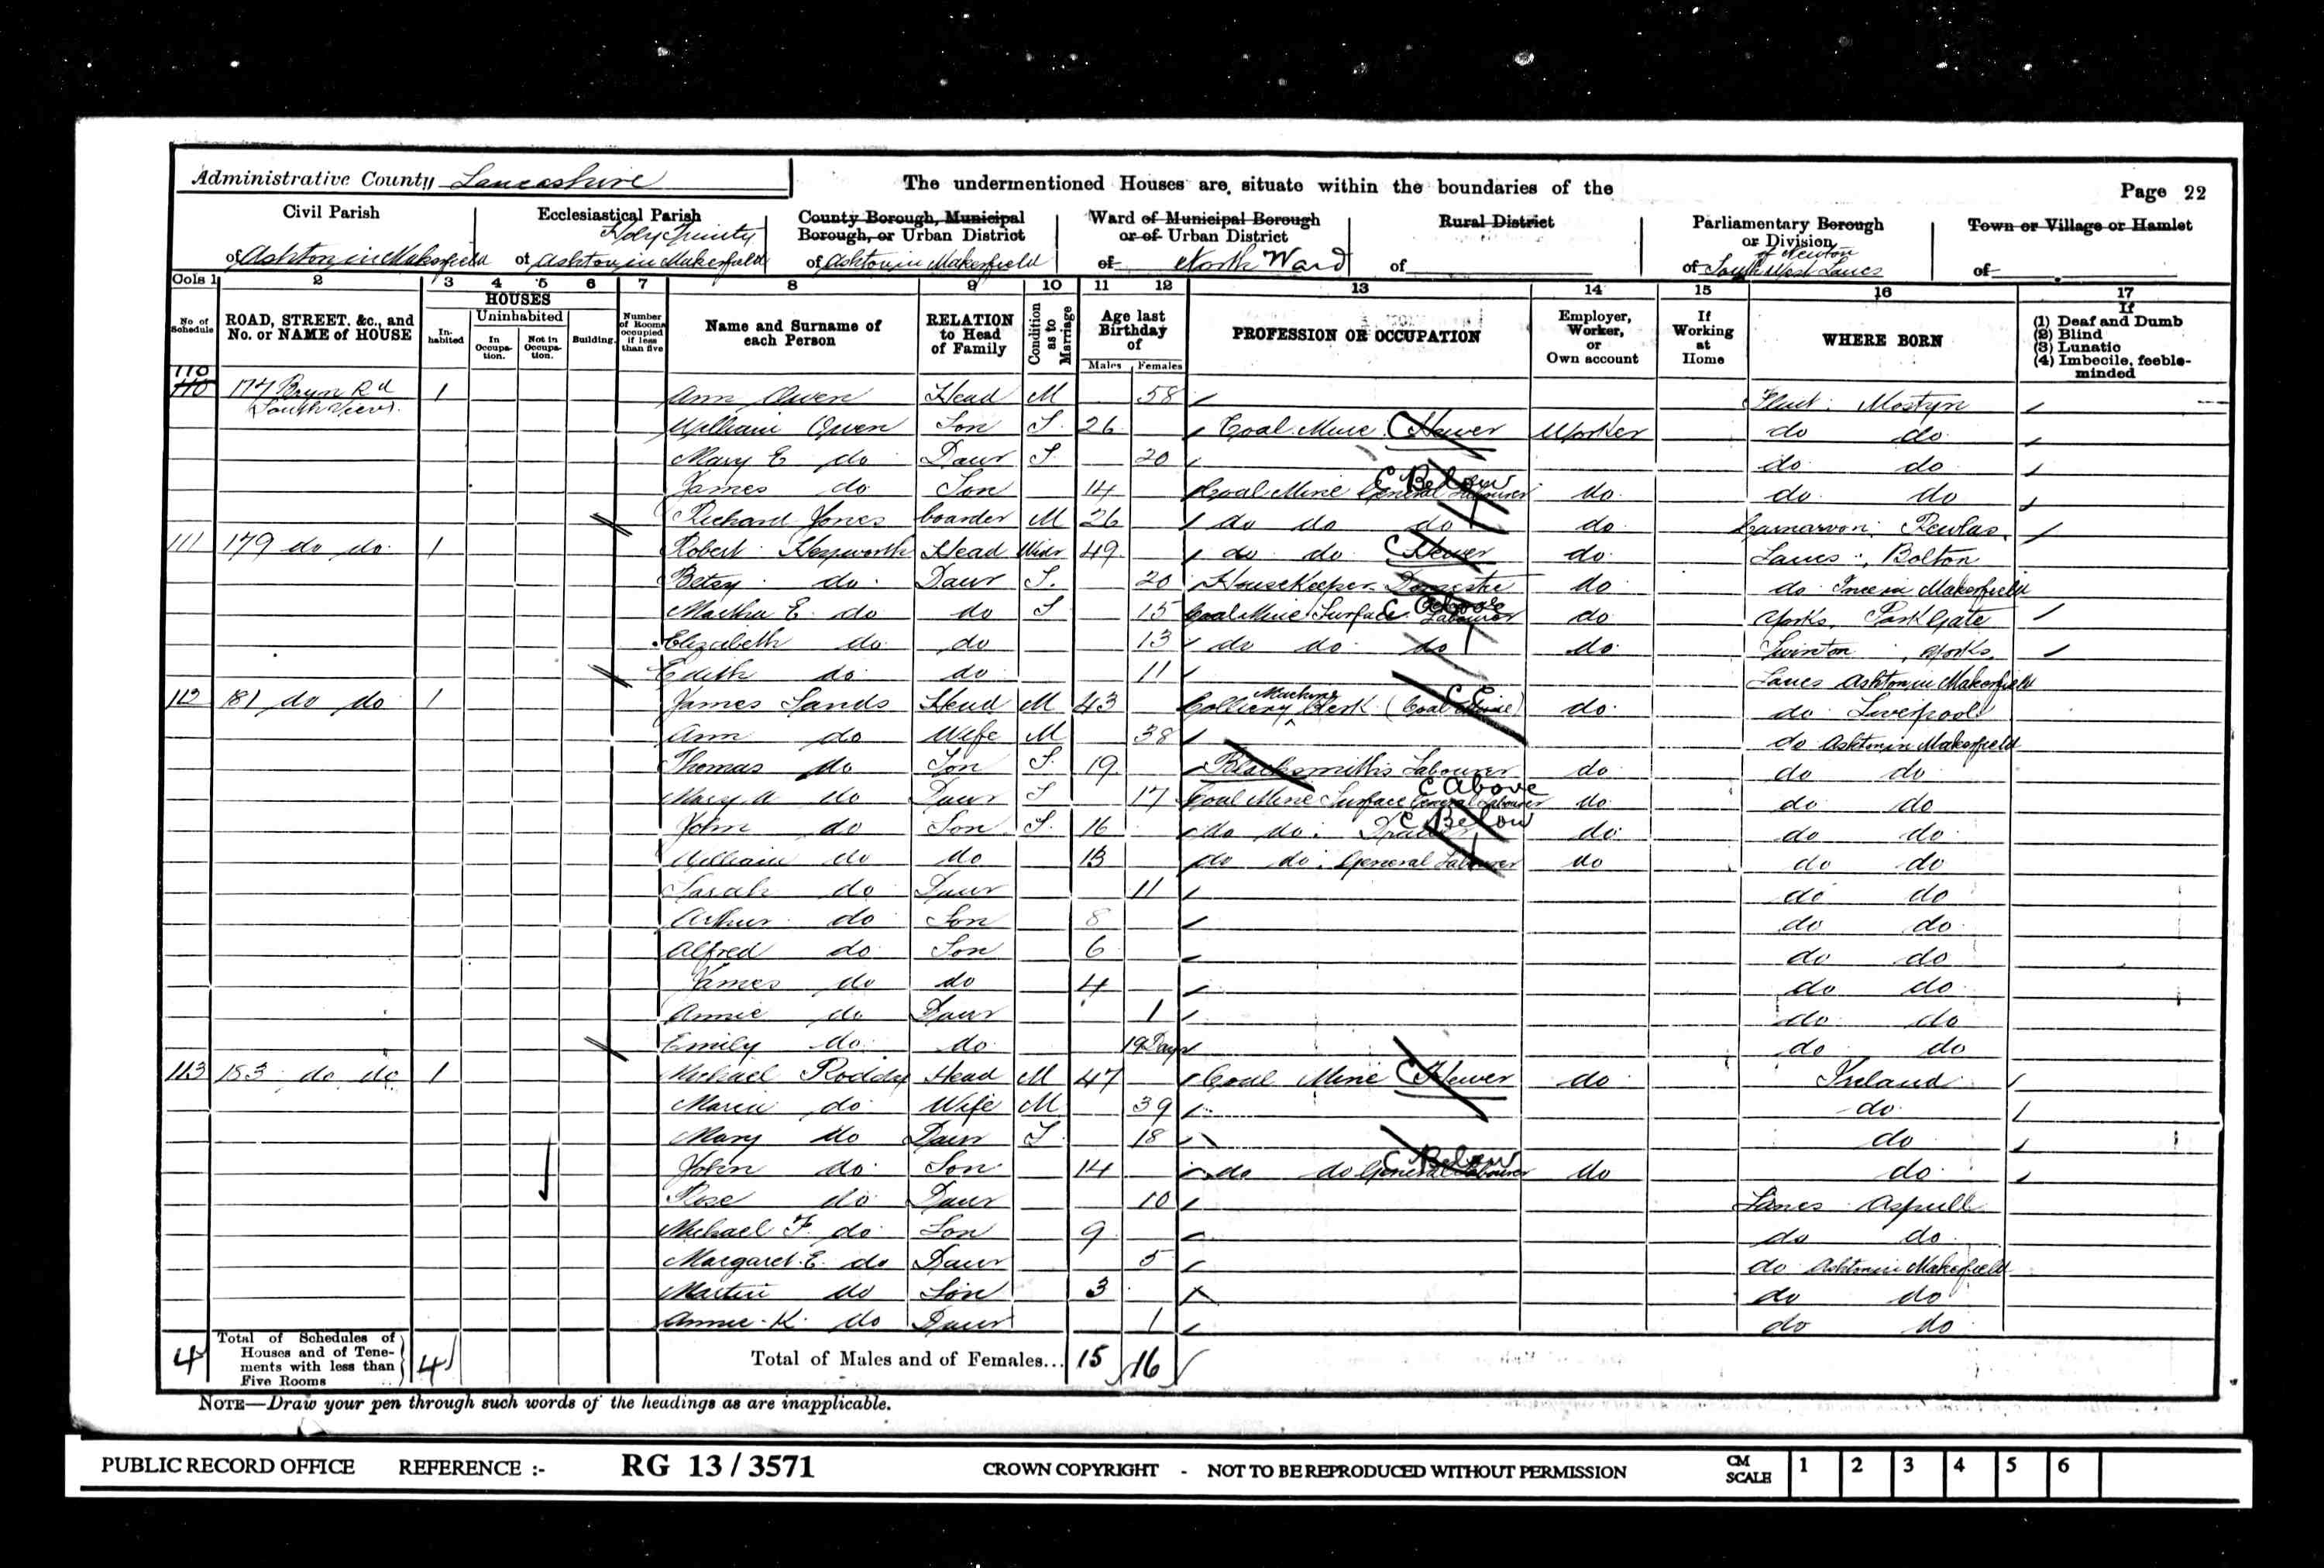 Administrative County Lancashire
The undermentioned Houses are situate within the boundaries of the
Page 22
Civil Parish
of Ashton in Makerfield
Ecclesiastical Parish
Holy Trinity
of Ashton in Makerfield
County Borough, Municipal
Borough, or Urban District
of Ashton in Makerfield
Ward of Municipal Borough
or of Urban District
of North Ward
Rural District
of
Parliamentary Borough
or Division
of Newton
of South West Lancs
Town or Village or Hamlet
of
Cols 1 2 3 4 5 6 7 8 9 10 11 12 13 14 15 16 17
No of Schedule
ROAD, STREET, &c., and No. or NAME of HOUSE
HOUSES
In-habited
Uninhabited
In Occupa-tion.
Not in Occupa-tion.
Building.
Number of Rooms occupied if less than five
Name and Surname of each Person
RELATION to Head of Family
Condition as to Marriage
Age last Birthday of
Males Females
PROFESSION OR OCCUPATION
Employer, Worker, or Own account
If Working at Home
WHERE BORN
If
(1) Deaf and Dumb
(2) Blind
(3) Lunatic
(4) Imbecile, feeble-minded
110
110 177 Bryn Rd 1 Ann Owen Head M 58 Flint: Mostyn
South View. William Owen Son S. 26 Coal Mine Hewer Worker do do
Mary E do Daur S 20 do do
C Below
James do Son 14 Coal Mine General Labourer do do do
Richard Jones boarder M 26 do do do do Carnarvon:
111 179 do do 1 Robert Hepworth Head Widr 49 do do Hewer do Lancs: Bolton
Betsy do Daur S. 20 Housekeeper Domestic do do Ince in Makerfield
C Above
Martha E. do do S 15 Coal Mine Surface Labourer do Yorks, Park Gate
Elizabeth do do 13 do do do do Swinton, Yorks
Edith do do 11 Lancs Ashton in Makerfield
112 181 do do 1 James Sands Head M 43 Colliery Clerk (Coal Mine) do do Liverpool
Ann do Wife M 38 do Ashton in Makerfield
Thomas do Son S. 19 Blacksmiths Labourer do do do
C Above
Mary A do Daur S 17 Coal Mine Surface General Labourer do do do
C Below
John do Son S. 16 do do. do do do
William do do 13 do do. General Labourer do do do
Sarah do Daur 11 do do
Arthur do Son 8 do do
Alfred do Son 6 do do
James do do 4 do do
Annie do Daur 1 do do
Emily do do 19 Days do do
113 183 do do 1 Michael Roddy Head M 47 Coal Mine Hewer do Ireland
Maria do Wife M 39 do
Mary do Daur S 18 do
C Below
John do Son 14 do do General Labourer do do
Rose do Daur 10 Lancs Aspull
Michael F. do Son 9 do do
Margaret E. do Daur 5 do Ashton in Makerfield
Martin do Son 3 do do
Annie K. do Daur 1 do do
4 Total of Schedules of Houses and of Tene-ments with less than Five Rooms 4 Total of Males and of Females... 15 16
NOTE—Draw your pen through such words of the headings as are inapplicable.
PUBLIC RECORD OFFICE REFERENCE :- RG 13 / 3571 CROWN COPYRIGHT - NOT TO BE REPRODUCED WITHOUT PERMISSION CM SCALE 1 2 3 4 5 6